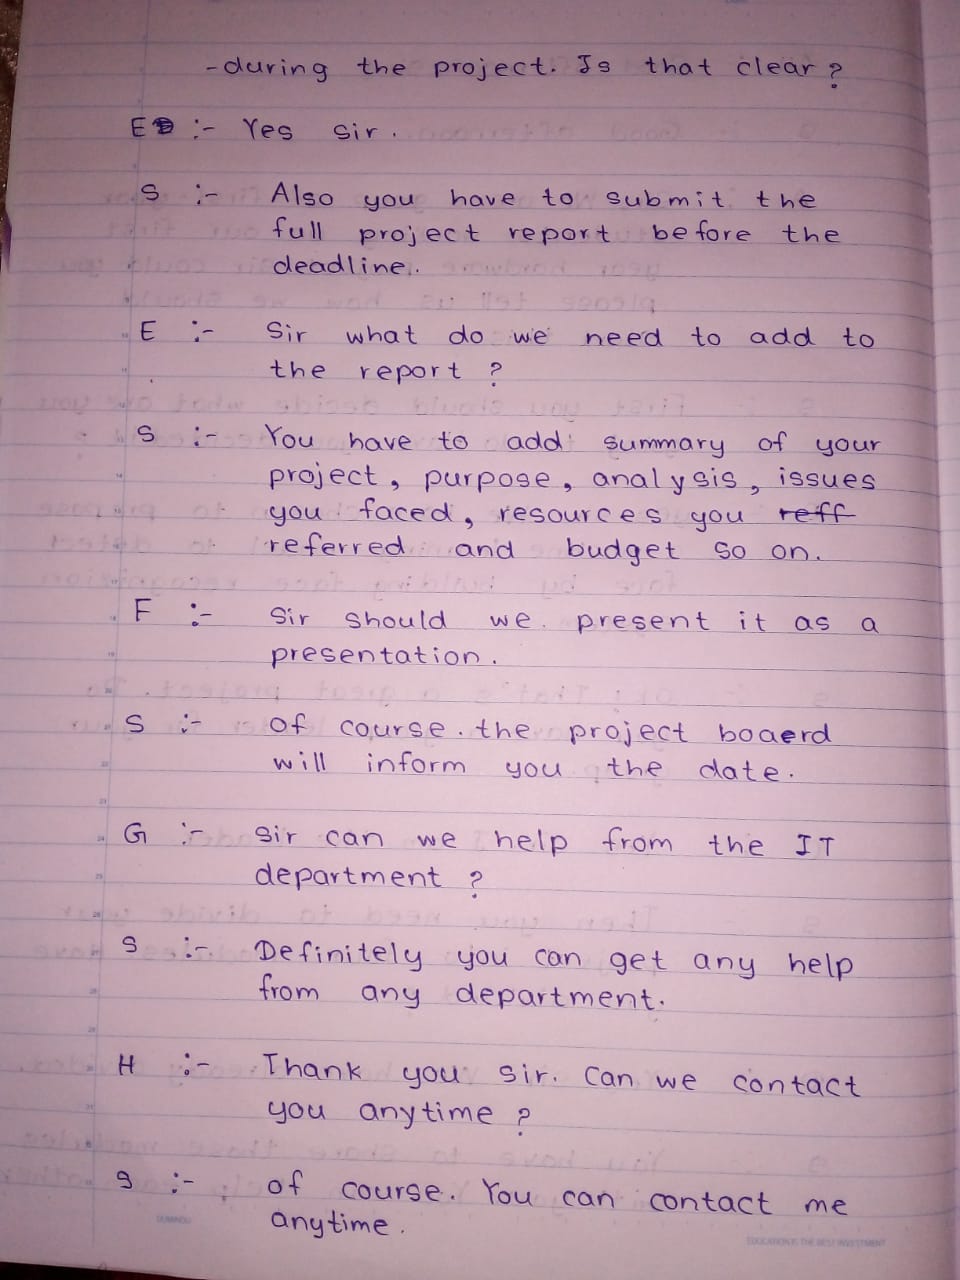 -during the project. Is that clear?
E :- Yes sir.
S :- Also you have to submit the
full project report before the
deadline.
E :- Sir what do we need to add to
the report ?
S :- You have to add summary of your
project, purpose, analysis, issues
you faced, resources you reff
referred and budget so on.
F :- Sir should we present it as a
presentation.
S :- Of course. the project boaerd
will inform you the date.
G :- Sir can we help from the IT
department ?
S :- Definitely you can get any help
from any department.
H :- Thank you sir. Can we contact
you anytime ?
S :- Of course. You can contact me
anytime.
EDUCATION IS THE BEST INVESTMENT